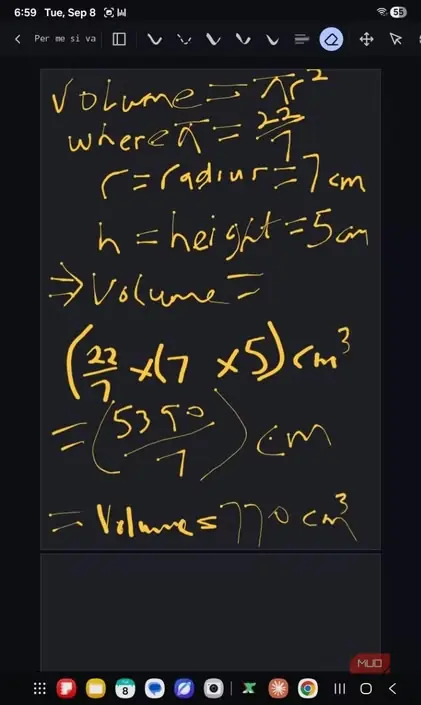 6:59 Tue, Sep 8
55
Per me si va
Volume = πr²
where π = 22/7
r = radius = 7 cm
h = height = 5 cm
⇒ Volume =
(22/7 × (7 × 5) cm³
= (5390/7) cm
= Volume = 770 cm³
MUO
8